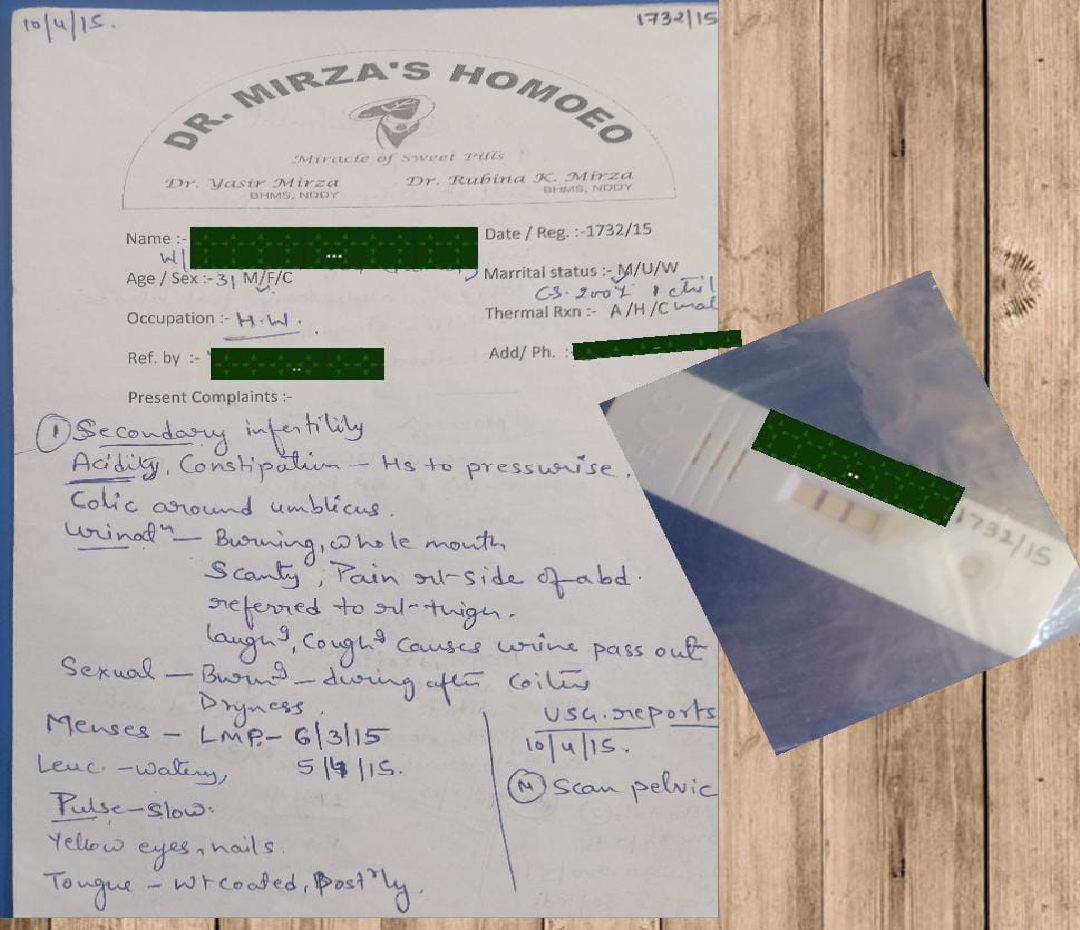 10/4/15.
1732/15
DR. MIRZA'S HOMOEO
Miracle of Sweet Pills
Dr. Yasir Mirza
BHMS, NDDY
Dr. Rubina K. Mirza
BHMS, NDDY
Name :-
W/
Date / Reg. :-1732/15
Age / Sex :-31 M/F/C
Marrital status :- M/U/W
CS. 2007 1 child
Occupation :- H.W.
Thermal Rxn :- A /H /C
Ref. by :-
Add/ Ph. :-
Present Complaints :-
① Secondary infertility
Acidity, Constipation – Hs to pressurise.
Colic around umblicus.
Urinatⁿ – Burning, whole month
Scanty, Pain rt-side of abd.
referred to rt-thigh.
laughᵍ, Coughᵍ Causes urine pass out
Sexual – Burnᵍ – during after Coitus
Dryness.
Menses – LMP – 6/3/15
5/4/15.
Leuc. – watery,
Pulse – slow.
Yellow eyes, nails.
Tongue – wt coated, Postʳly.
USG. reports
10/4/15.
Ⓝ Scan pelvic
1732/15